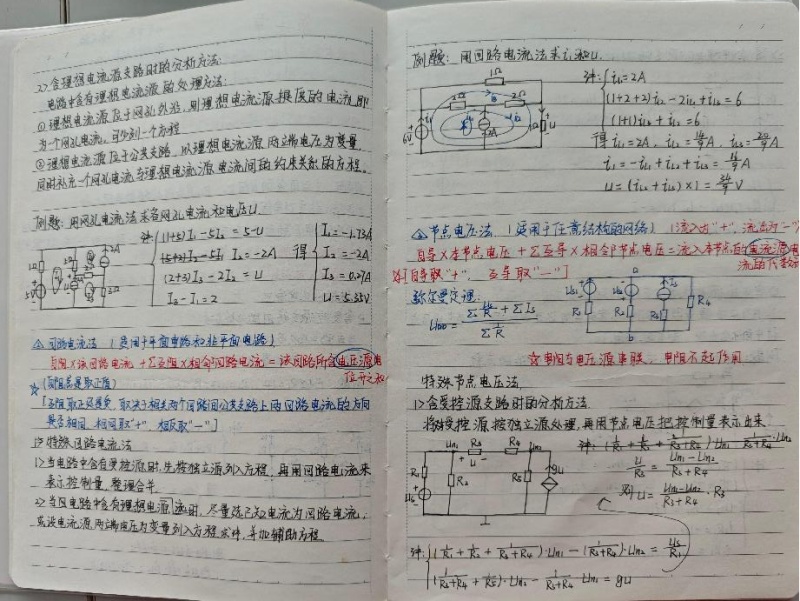 2> 含理想电流源支路时的分析方法:
电路中含有理想电流源的处理方法:
① 理想电流源位于网孔外沿,则理想电流源提供的电流即
为一个网孔电流,可少列一个方程
②理想电流源位于公共支路,以理想电流源两端电压为变量
同时补充一个网孔电流与理想电流源电流间的约束关系的方程。
例题: 用网孔电流法求各网孔电流和电压U.
解: (1+5)I₁-5I₂ = 5-U
I₂ = -2A
(2+3)I₃-2I₂ = U
I₃-I₁ = 2
得
I₁=-1.73A
I₂=-2A
I₃=0.27A
U=5.35V
回路电流法 (适用于平面电路和非平面电路)
自阻×该回路电流 + Σ互阻×相邻回路电流 = 该回路所含电压源电
位升之和
☆ (自阻总是取正值)
[互阻取正还是负,取决于相关两个回路间公共支路上两回路电流的方向
是否相同,相同取"+" 相反取"-"]
特殊回路电流法
1> 当电路中含有受控源时,先按独立源列入方程,再用回路电流来
表示控制量,整理合并
2> 当回电路中含有理想电源
尽量选已知电流为回路电流,
或设电流源两端电压为变量列入方程求解,并加辅助方程.
例题: 用回路电流法求i₁和U.
1Ω
2Ω
2Ω
2A
6V
1Ω
U
解:
iL1=2A
(1+2+2)iL2-2iL1+iL3=6
(1+1)iL3+iL2=6
得 iL1=2A,
i₁=-iL1+iL2+iL3
U=(iL2+iL3)×1
节点电压法 (适用于任意结构的网络) (流入为"+", 流出为"-")
自导×本节点电压 + Σ互导×相邻节点电压 = 流入本节点的电流源电
流的代数和
[自导取"+", 互导取"-"]
弥尔曼定理:
a
R₁
R₂
R₄
b
☆ 电阻与电流源串联, 电阻不起作用
特殊节点电压法
1> 含受控源支路时的分析方法
将受控源按独立源处理,再用节点电压把控制量表示出来.
Un1
R₃
R₄
Un2
U
R₁
R₂
R₅
gU
U/R₃ = (Un1-Un2)/(R₃+R₄)
则 U = (Un1-Un2)/(R₃+R₄) · R₃
解:
(1/R₁ + 1/R₂ + 1/(R₃+R₄))·Un1 - (1/(R₃+R₄))·Un2 = Us/R₁
(1/(R₃+R₄) + 1/R₅)·Un2 - 1/(R₃+R₄) Un1 = gU